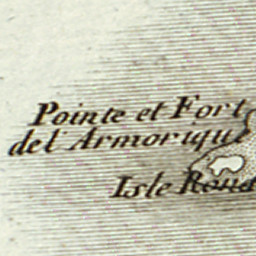 Pointe et Fort
del Armorique
Isle Rond